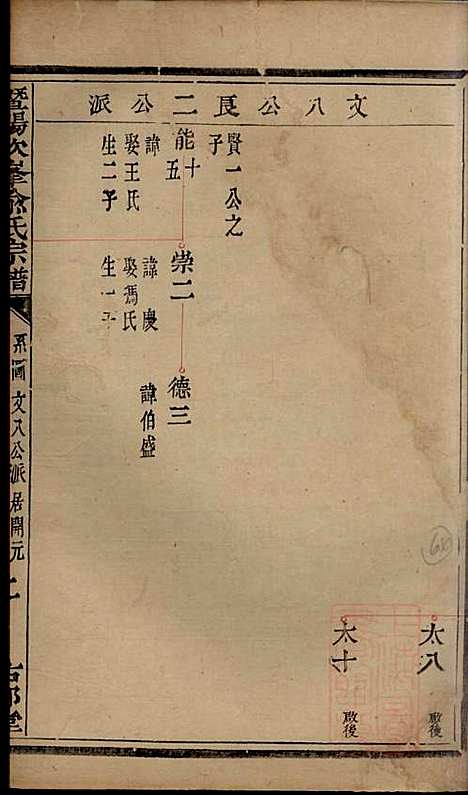 文八公良二公派
太八
啟後
太十
啟後
賢一公之
子
能十
五
諱
娶王氏
生二子
崇二
諱慶
娶馮氏
生一子
德三
諱伯盛
暨陽次峯俞氏宗譜
系圖 文八公派居開元
二